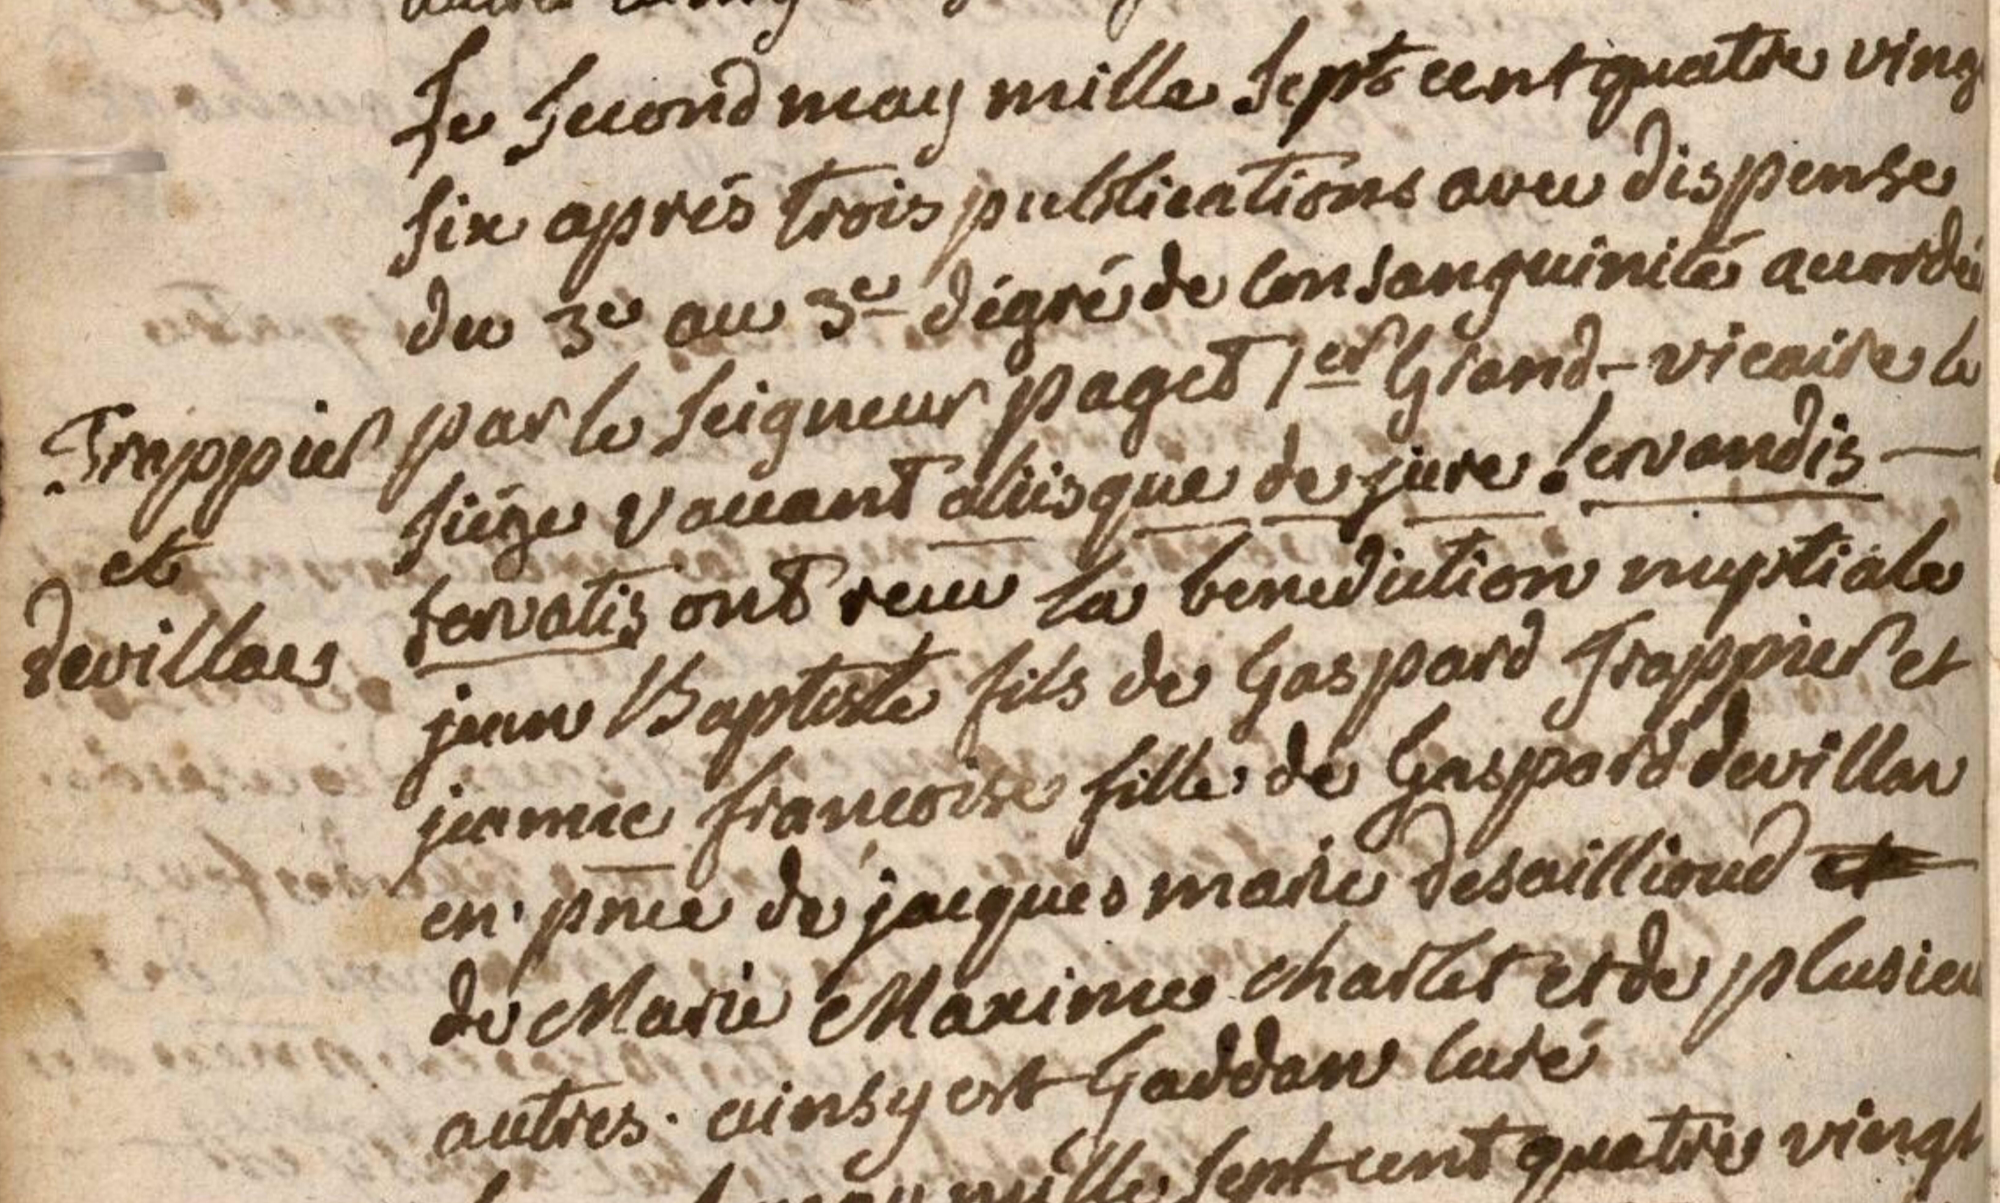 Le second may mille sept cent quatre ving
six aprés trois publications avec dispense
du 3e au 3e dégré de consanguinité accordée
par le seigneur paget 1er Grand-vicaire le
siége vacant aliisque de jure servandis
servatis ont recu la benediction nuptiale
jean Baptiste fils de Gaspard Trappier et
jeanne francoise fille de Gaspard devillaz
en pnce de jacques marie desaillioud et
de Marie Maxime charlet et de plusieu
autres. ainsy est Gaddan Curé
may mille sept cent quatre vingt
Trappier
et
devillaes